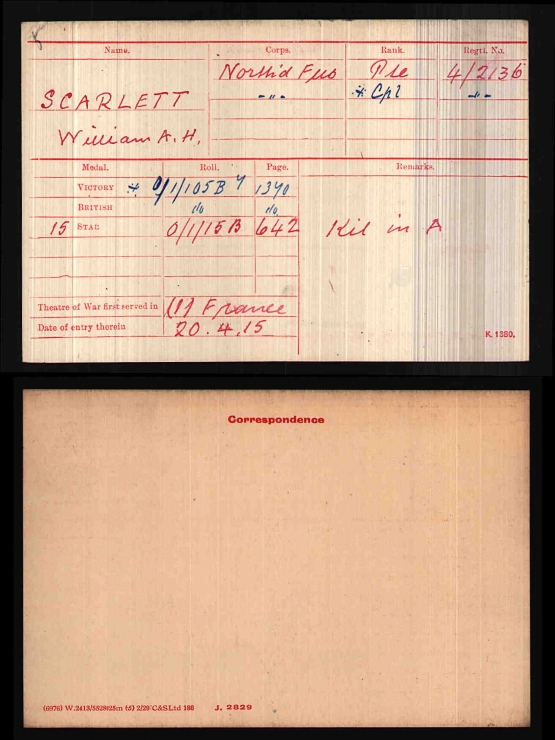 Name. Corps. Rank. Regtl. No.
North'd Fus Pte 4/2136
SCARLETT -"- * Cpl -"-
William A. H.
Medal. Roll. Page. Remarks.
VICTORY * 0/1/105B 1390
BRITISH do do
15 STAR 0/1/15B 642 Kil in A
Theatre of War first served in (1) France
Date of entry therein 20.4.15
K. 1380.
Correspondence
(6976) W.2413/ 2/29 C&SLtd 188 J. 2829